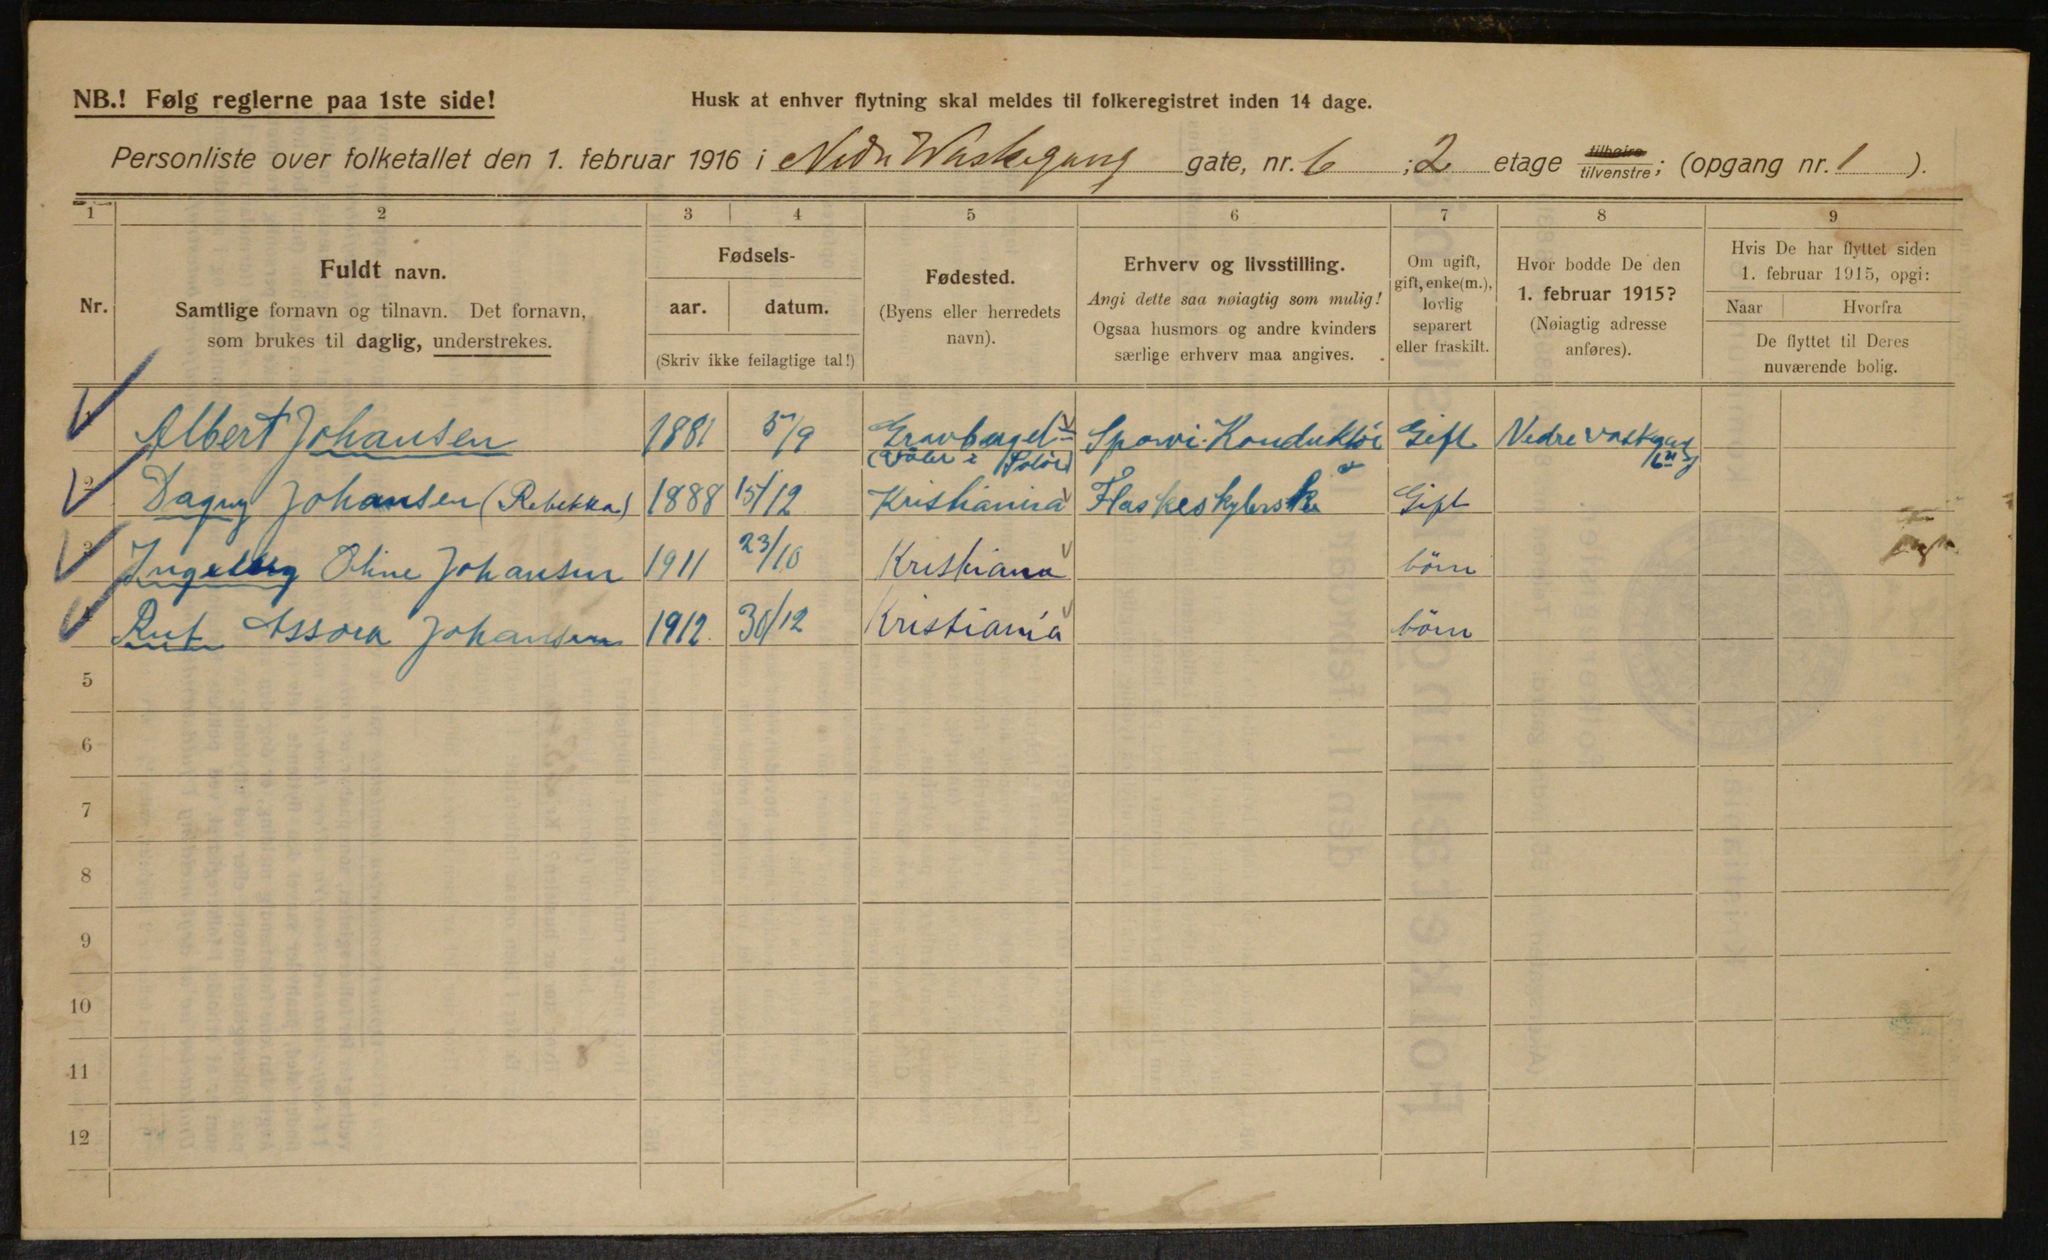 NB.! Følg reglerne paa 1ste side!
Husk at enhver flytning skal meldes til folkeregistret inden 14 dage.
Personliste over folketallet den 1. februar 1916 i Nedr Vaskegang gate, nr. 6 ; 2 etage tilhøire tilvenstre; (opgang nr. 1 ).
1 2 3 4 5 6 7 8 9
Nr.
Fuldt navn.
Samtlige fornavn og tilnavn. Det fornavn,
som brukes til daglig, understrekes.
Fødsels-
aar. datum.
(Skriv ikke feilagtige tal!)
Fødested.
(Byens eller herredets
navn).
Erhverv og livsstilling.
Angi dette saa nøiagtig som mulig!
Ogsaa husmors og andre kvinders
særlige erhverv maa angives.
Om ugift,
gift, enke(m.),
lovlig
separert
eller fraskilt.
Hvor bodde De den
1. februar 1915?
(Nøiagtig adresse
anføres).
Hvis De har flyttet siden
1. februar 1915, opgi:
Naar Hvorfra
De flyttet til Deres
nuværende bolig.
Albert Johansen 1881 5/9 Gravberget Sporvi. Konduktör Gift Nedre vaskegang
(Våler i Solör) 6
2 Dagny Johansen (Rebekka) 1888 15/12 Kristiania Flaskeskylerske Gift
3 Ingeborg Oline Johansen 1911 23/10 Kristiana börn
Rut Assora Johansen 1912 30/12 Kristiania börn
5
6
7
8
9
10
11
12